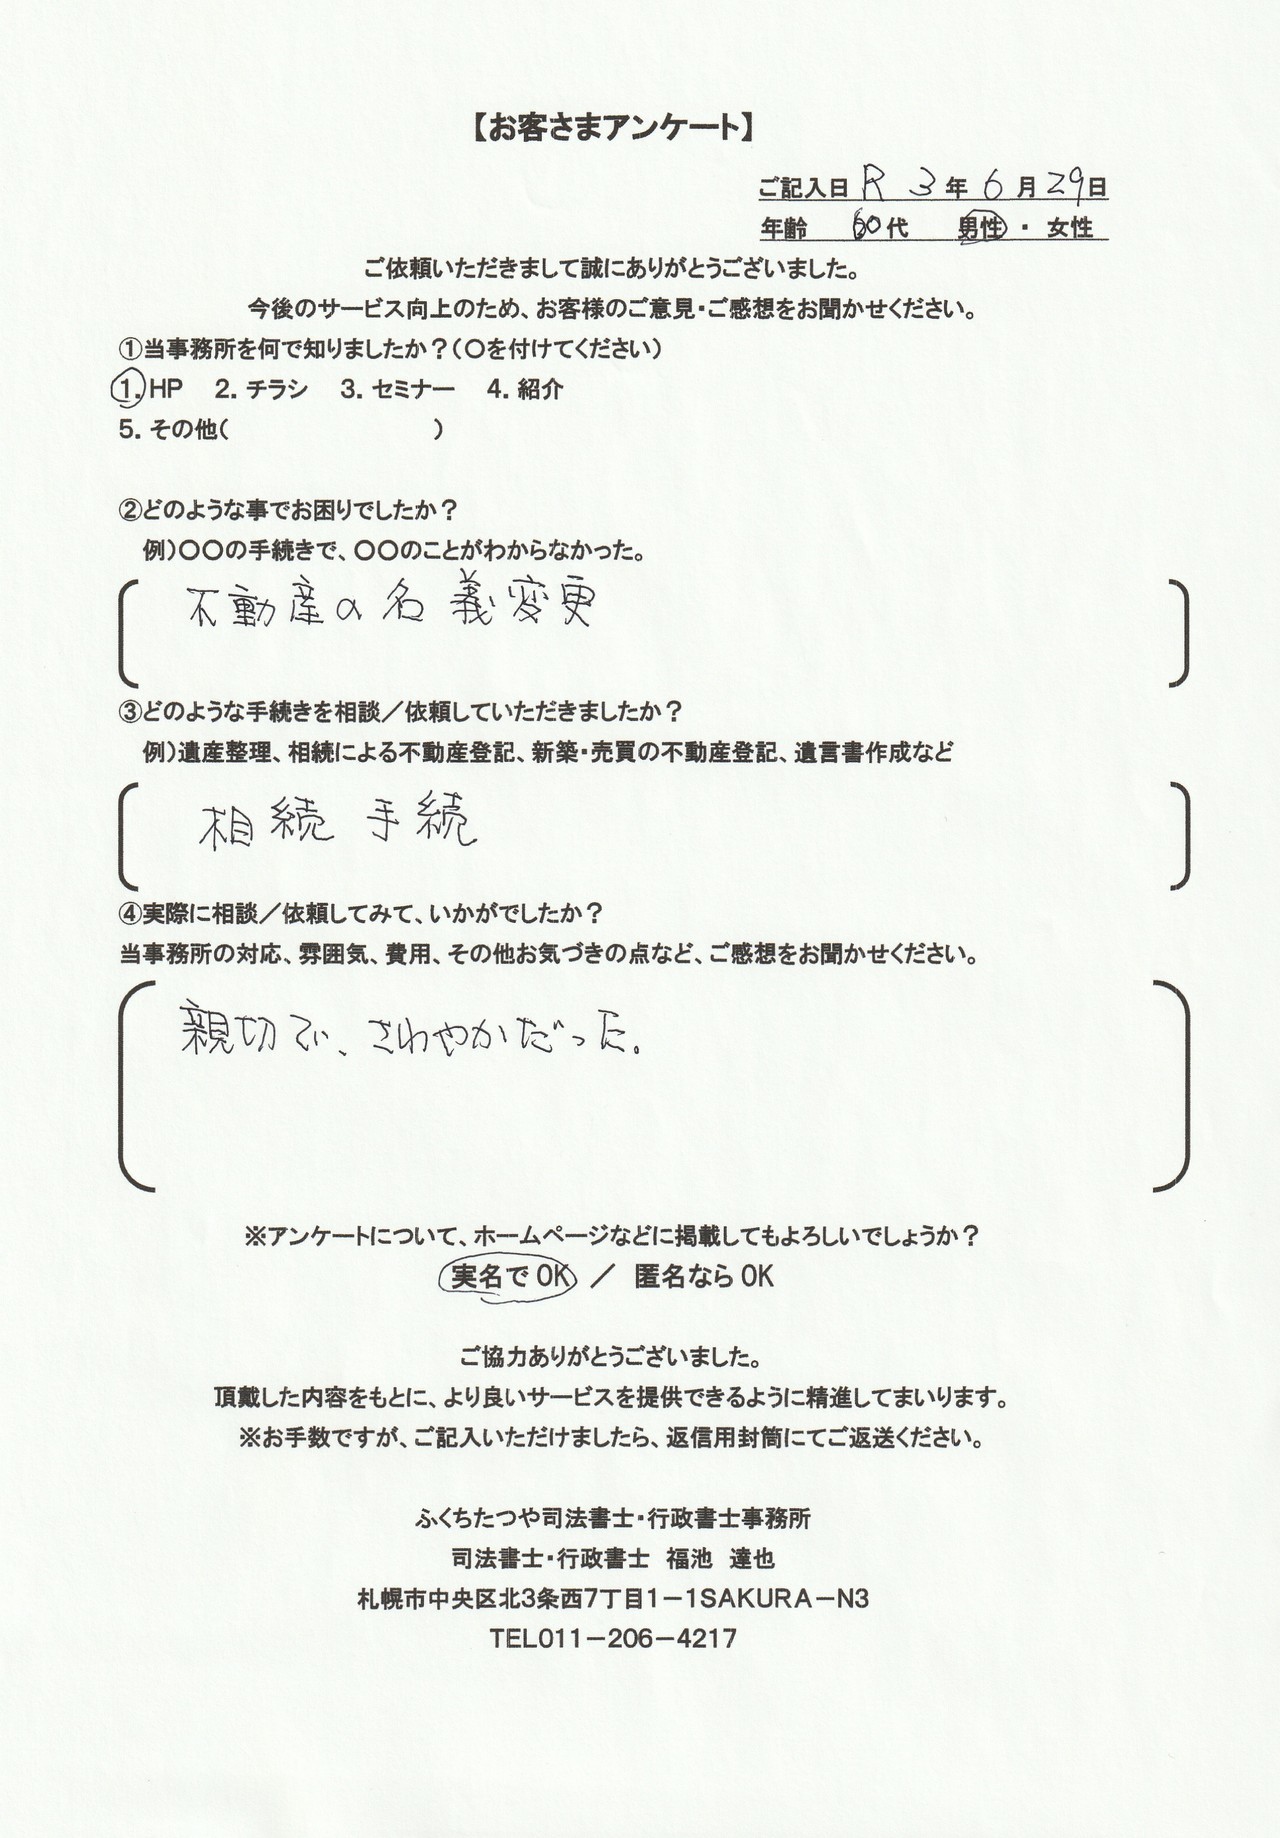 【お客さまアンケート】
ご記入日 R 3年 6月 29日
年齢 60代 男性・女性
ご依頼いただきまして誠にありがとうございました。
今後のサービス向上のため、お客様のご意見・ご感想をお聞かせください。
①当事務所を何で知りましたか？（○を付けてください）
1. HP 2. チラシ 3. セミナー 4. 紹介
5. その他（ ）
②どのような事でお困りでしたか？
例）○○の手続きで、○○のことがわからなかった。
不動産の名義変更
③どのような手続きを相談／依頼していただきましたか？
例）遺産整理、相続による不動産登記、新築・売買の不動産登記、遺言書作成など
相続手続
④実際に相談／依頼してみて、いかがでしたか？
当事務所の対応、雰囲気、費用、その他お気づきの点など、ご感想をお聞かせください。
親切で、さわやかだった。
※アンケートについて、ホームページなどに掲載してもよろしいでしょうか？
実名でOK ／ 匿名ならOK
ご協力ありがとうございました。
頂戴した内容をもとに、より良いサービスを提供できるように精進してまいります。
※お手数ですが、ご記入いただけましたら、返信用封筒にてご返送ください。
ふくちたつや司法書士・行政書士事務所
司法書士・行政書士 福池 達也
札幌市中央区北3条西7丁目1－1SAKURA－N3
TEL011－206－4217